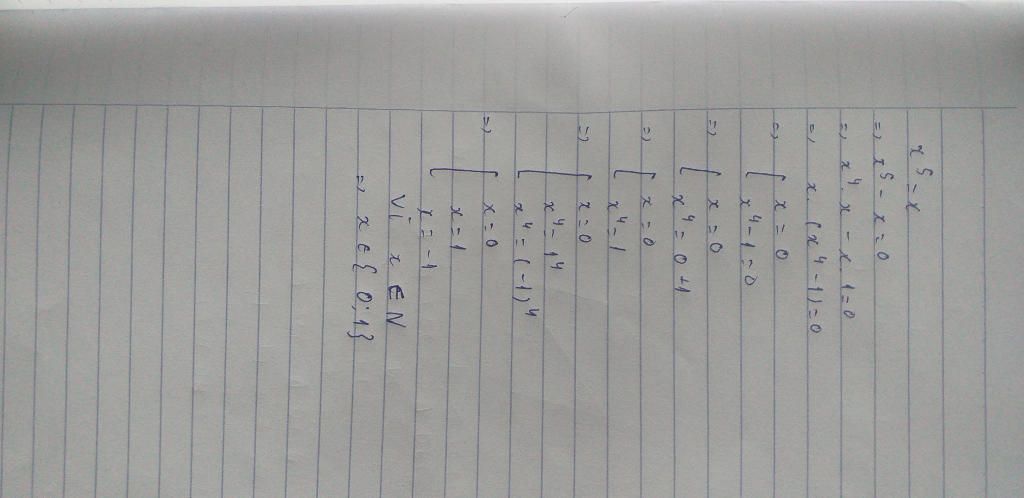 x⁵ = x
=> x⁵ - x = 0
=> x⁴ . x - x . 1 = 0
=> x . (x⁴ - 1) = 0
=> [ x = 0
x⁴ - 1 = 0
=> [ x = 0
x⁴ = 0 + 1
=> [ x = 0
x⁴ = 1
=> [ x = 0
x⁴ = 1⁴
x⁴ = (-1)⁴
=> [ x = 0
x = 1
x = -1
Vì x ∈ N
=> x ∈ { 0 ; 1 }